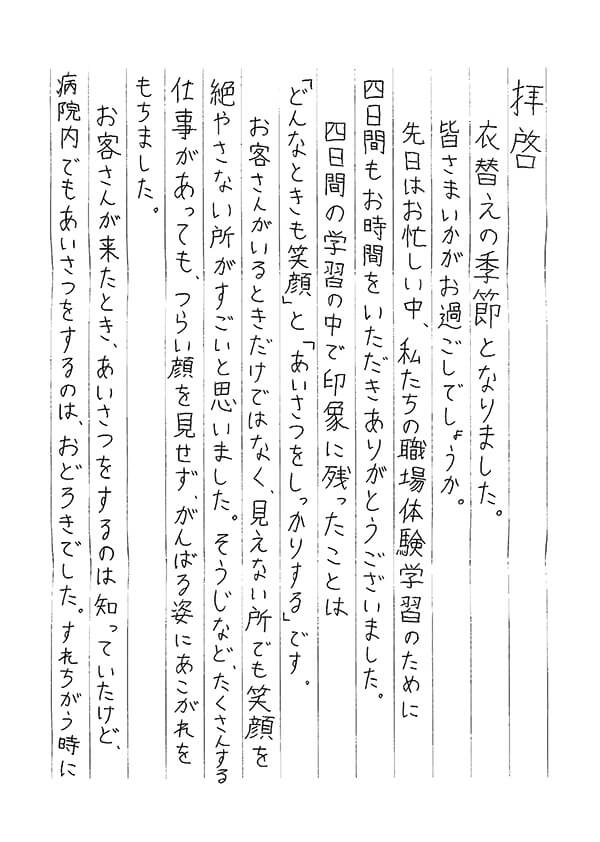 拝啓
衣替えの季節となりました。
皆さまいかがお過ごしでしょうか。
先日はお忙しい中、私たちの職場体験学習のために
四日間もお時間をいただきありがとうございました。
四日間の学習の中で印象に残ったことは
「どんなときも笑顔」と「あいさつをしっかりする」です。
お客さんがいるときだけではなく、見えない所でも笑顔を
絶やさない所がすごいと思いました。そうじなど、たくさんする
仕事があっても、つらい顔を見せず、がんばる姿にあこがれを
もちました。
お客さんが来たとき、あいさつをするのは知っていたけど、
病院内でもあいさつをするのは、おどろきでした。すれちがう時に